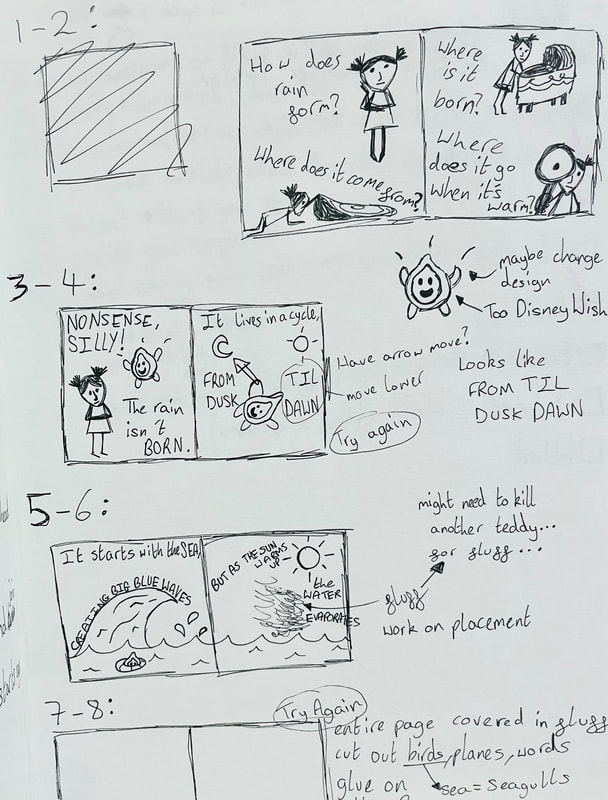 1-2:
How does
rain
form?
Where does it come
from?
Where
is it
born?
Where
does it go
when it's
warm?
3-4:
NONSENSE,
SILLY!
The rain
isn't
BORN.
It lives in a cycle,
FROM
DUSK
TIL
DAWN
maybe change
design
Too Disney Wish
Have arrow move?
move lower
Try again
Looks like
FROM TIL
DUSK DAWN
5-6:
It starts with the SEA,
CREATING BIG BLUE WAVES
BUT AS THE SUN
WARMS
UP-
the
WATER
EVAPORATES
might need to kill
another teddy...
for fluff...
fluff
work on placement
7-8:
Try Again
entire page covered in fluff
cut out birds, planes, words
glue on
sea = Seagulls